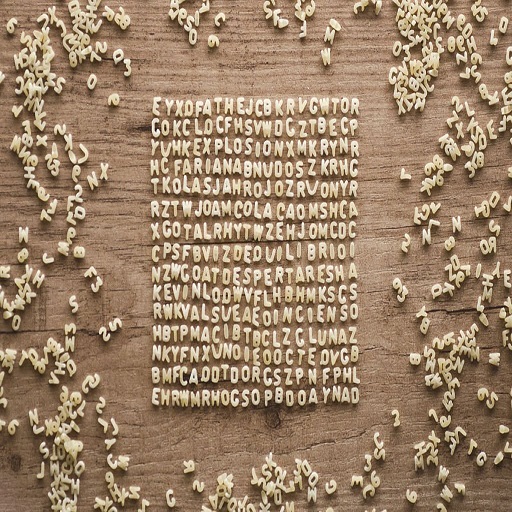 EYXOFATHEJCBKRVGWTOR
GOKCLOCFHSVWDGZTBECP
YUHKEXPLOSIONXMKRYNR
HCFARIANABNUDOSZKRHC
TKOLASJAHROJOZRUONYR
RZTWJOAMCOLACAOMSHCA
XGOTALRHYTWZEHJOMCDC
CPSFBVIZDEQUILIBRIOI
NZWGOATDESPERTARESHA
KEVINLODWVFLHBHMKSGS
RWKVALSUEAEOINCIENSO
HBTPMACIBTBCLZCLUNAZ
NKYFNXUNOISOOCTEDVGB
BMFCAODTDORGSZPNFPHL
EHRWMRHOGSOPBDOAYNAD